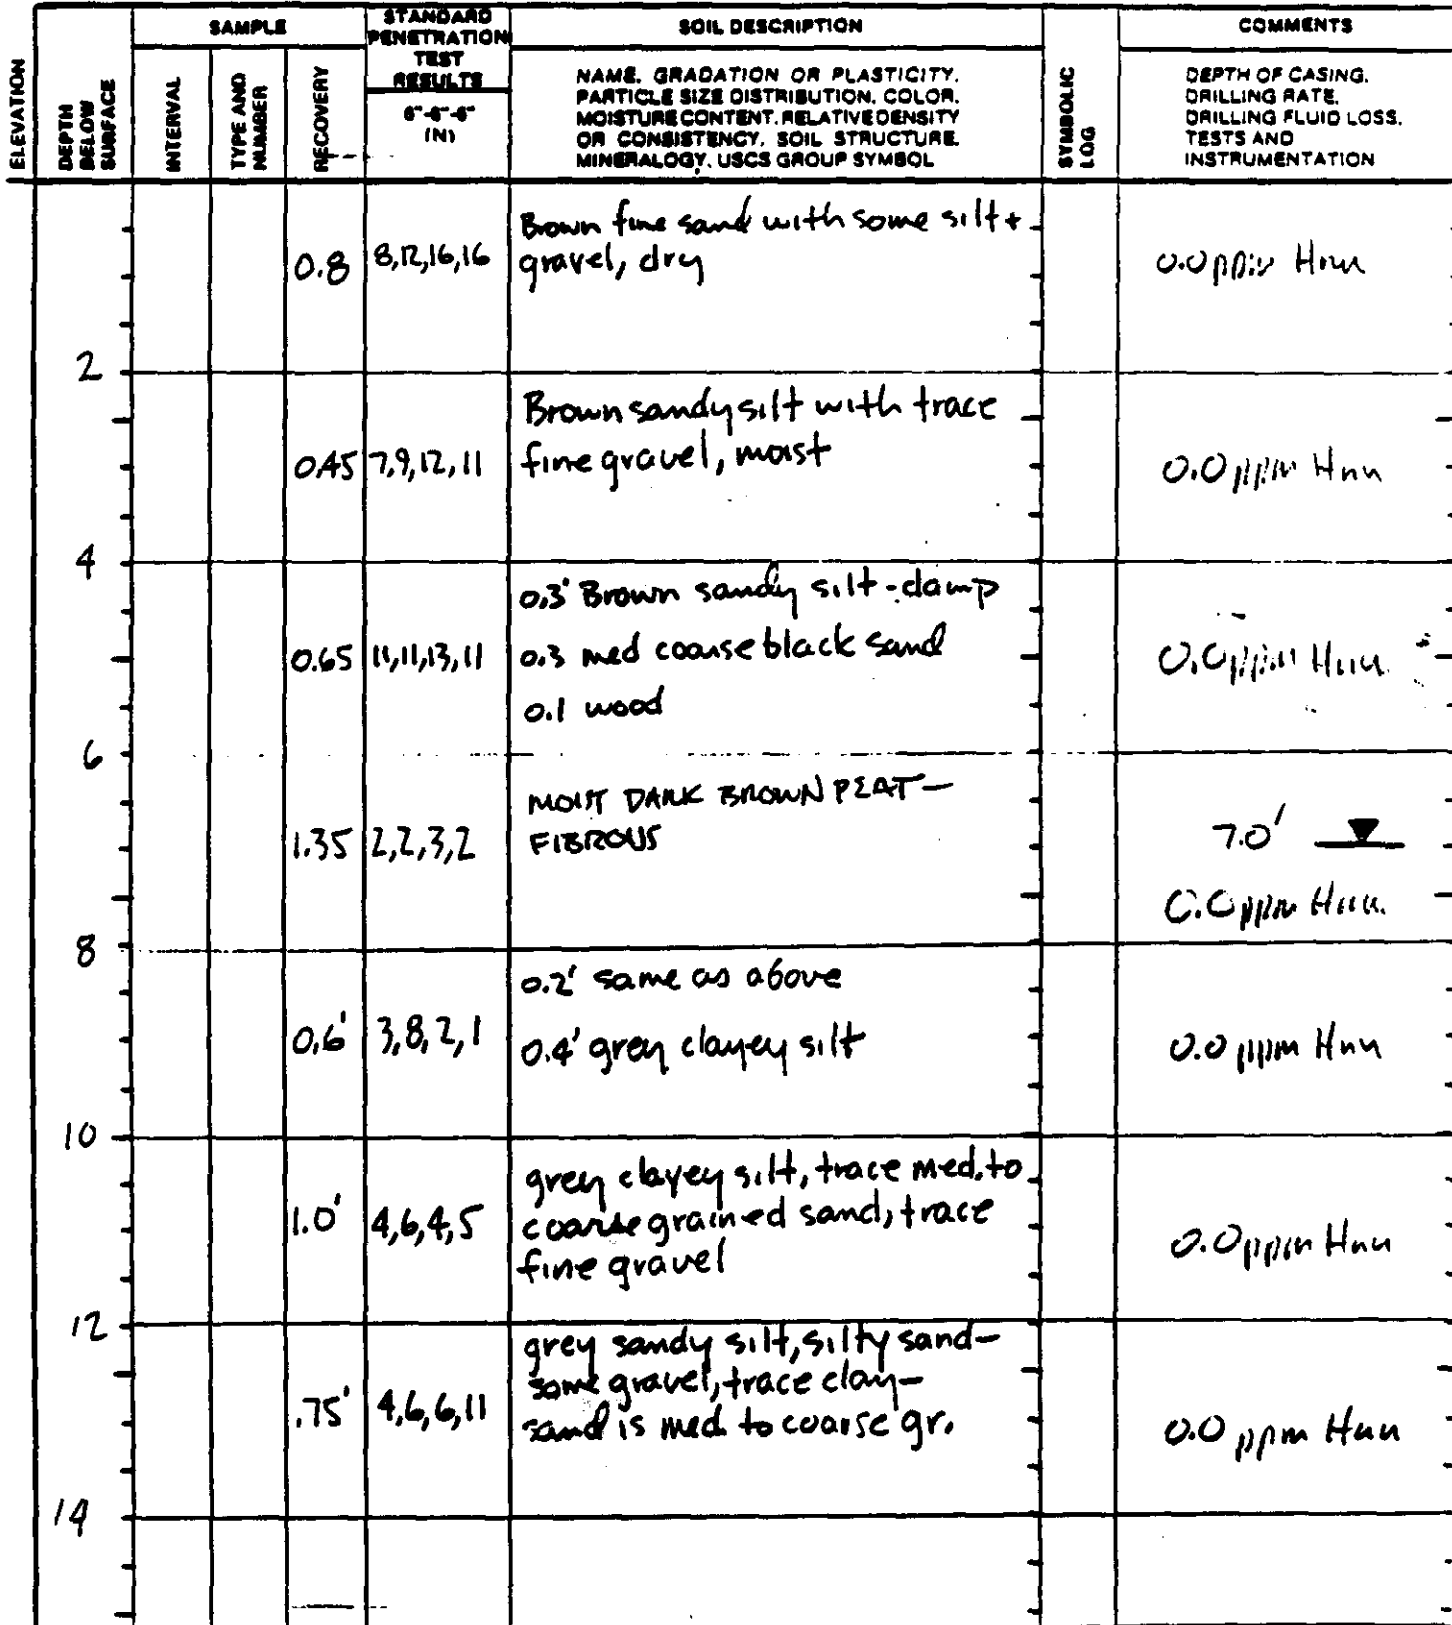 ELEVATION
DEPTH
BELOW
SURFACE
SAMPLE
INTERVAL
TYPE AND
NUMBER
RECOVERY
STANDARD
PENETRATION
TEST
RESULTS
6"-6"-6"
(N)
SOIL DESCRIPTION
NAME. GRADATION OR PLASTICITY.
PARTICLE SIZE DISTRIBUTION. COLOR.
MOISTURE CONTENT. RELATIVE DENSITY
OR CONSISTENCY. SOIL STRUCTURE.
MINERALOGY. USCS GROUP SYMBOL
SYMBOLIC
LOG
COMMENTS
DEPTH OF CASING.
DRILLING RATE.
DRILLING FLUID LOSS.
TESTS AND
INSTRUMENTATION
Brown fine sand with some silt +
gravel, dry
0.8 8,12,16,16
0.0 ppm Hnu
2
Brown sandy silt with trace
fine gravel, moist
0.45 7,9,12,11
0.0 ppm Hnu
4
0.3' Brown sandy silt - damp
0.65 11,11,13,11 0.3 med coarse black sand
0.0 ppm Hnu
0.1 wood
6
MOIST DARK BROWN PEAT-
FIBROUS
1.35 2,2,3,2
7.0'
0.0 ppm Hnu
8
0.2' same as above
0.6' 3,8,2,1 0.4' grey clayey silt
0.0 ppm Hnu
10
grey clayey silt, trace med. to
1.0' 4,6,4,5 coarse grained sand, trace
fine gravel
0.0 ppm Hnu
12
grey sandy silt, silty sand-
some gravel, trace clay-
.75' 4,6,6,11 sand is med. to coarse gr.
0.0 ppm Hnu
14